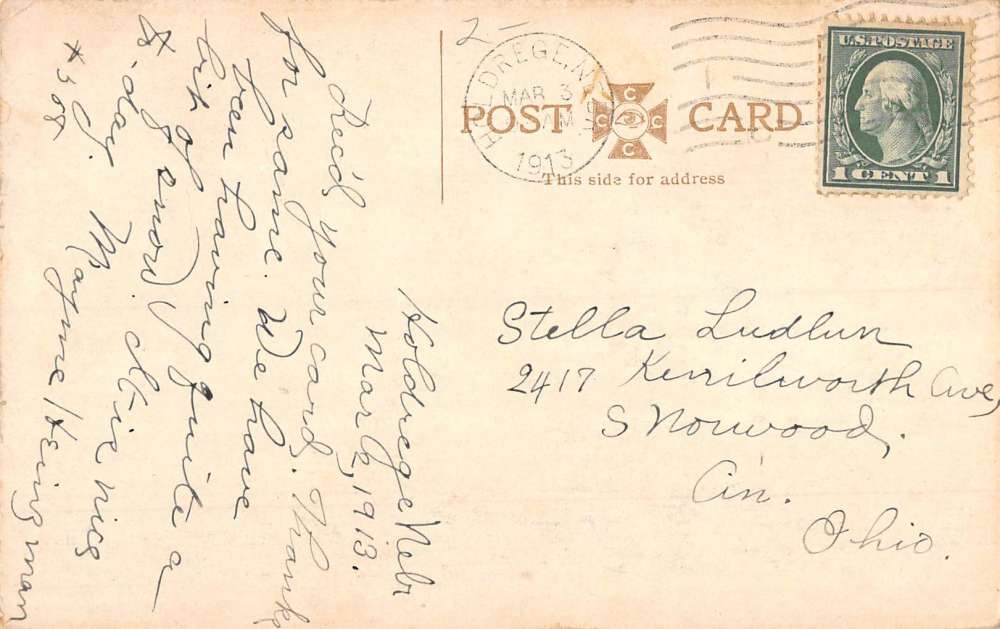 2-
HOLDREGE, NEBR.
MAR 3
AM
1913
POST CARD
C C C C
This side for address
U.S. POSTAGE
1 CENT 1
Holdrege Nebr
Mar 2, 1913.
Rec'd your card. Thanks
for same. We have
been having quite a
bit of snow. It is nice
to-day. Mayme Heingman
Stella Ludlum
2417 Kenilworth Ave,
S Norwood,
Cin.
Ohio.